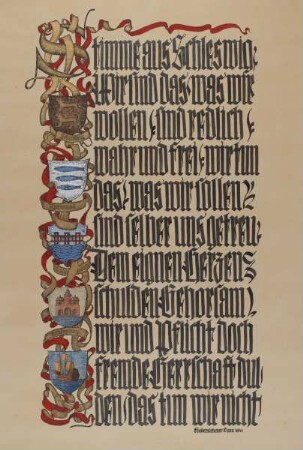 Stimme aus Schleswig:
Wir sind das, was wir
wollen, sind redlich,
wahr und frei, wir tun
das, was wir sollen &
sind selber uns getreu.
Dem eignen Herzens
schulden Gehorsam,
wir und Pflicht doch
fremde Herrschaft dul-
den, das tun wir nicht